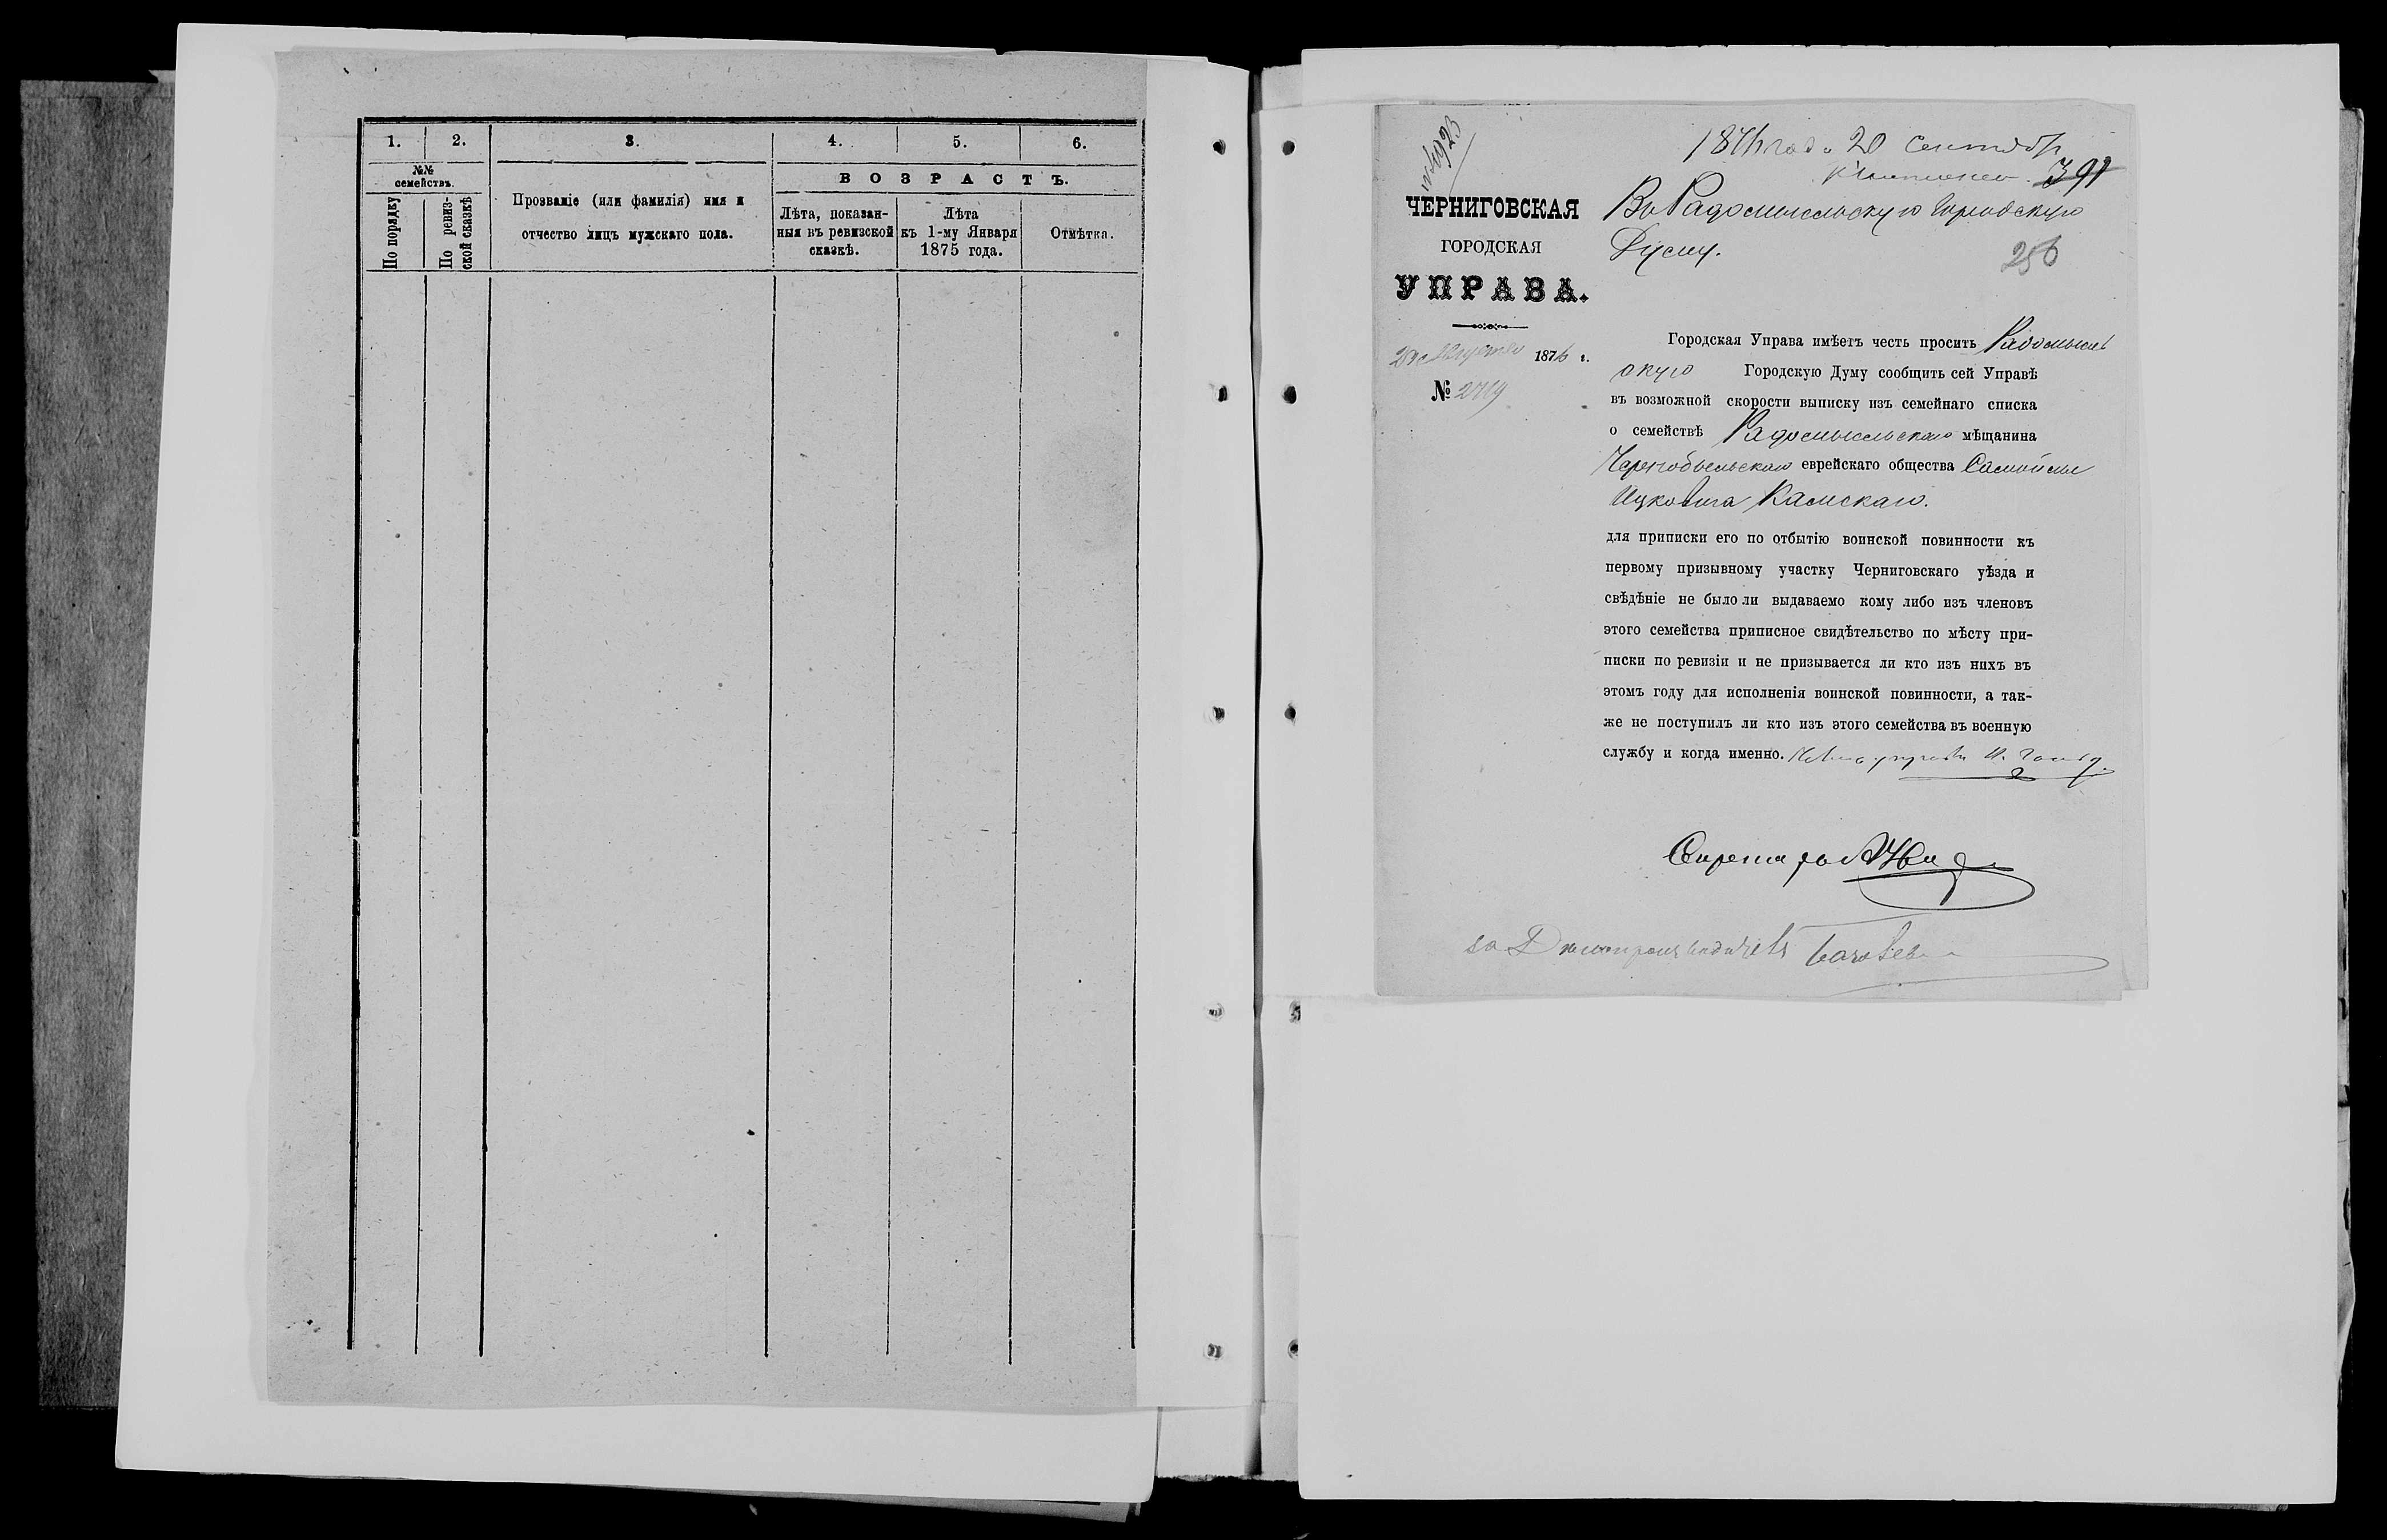 1. 2. 3. 4. 5. 6.
№№ семействъ.
По порядку
По ревиз-
ской сказкѣ
Прозваніе (или фамилія) имя и
отчество лицъ мужскаго пола.
ВОЗРАСТЪ.
Лѣта, показан-
ныя въ ревизской
сказкѣ.
Лѣта
къ 1-му Января
1875 года.
Отмѣтка.
1876 года 20 Сентября
391
ЧЕРНИГОВСКАЯ
ГОРОДСКАЯ
УПРАВА.
Августа 1876 г.
№ 2719
Въ Радомысльскую Городскую
Думу.
256
Городская Управа имѣетъ честь просить Радомысль
скую Городскую Думу сообщить сей Управѣ
въ возможной скорости выписку изъ семейнаго списка
о семействѣ Радомысльскаго мѣщанина
Чернобыльскаго еврейскаго общества Самойлы
Ицковича Камскаго.
для приписки его по отбытію воинской повинности къ
первому призывному участку Черниговскаго уѣзда и
свѣдѣніе не было ли выдаваемо кому либо изъ членовъ
этого семейства приписное свидѣтельство по мѣсту при-
писки по ревизіи и не призывается ли кто изъ нихъ въ
этомъ году для исполненія воинской повинности, а так-
же не поступилъ ли кто изъ этого семейства въ военную
службу и когда именно.
Секретарь